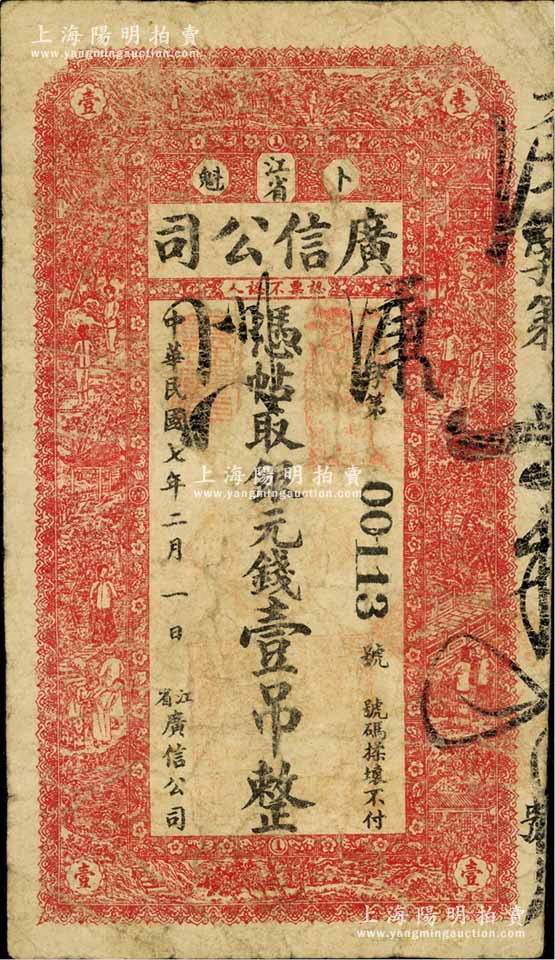 上海陽明拍賣
www.yangmingauction.com
壹
壹
卜
江省
魁
廣信公司
認票不認人
字第
00113
號
號碼揉壞不付
憑帖取銀元錢壹吊整
中華民國七年二月一日
江省廣信公司
上海陽明拍賣
www.yangmingauction.com
壹
壹
上海陽明拍賣
www.yangmingauction.com